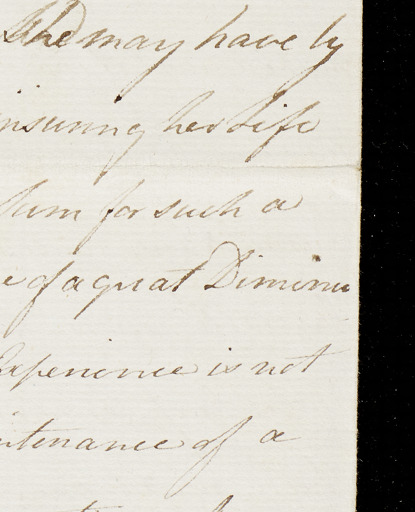 she may have by
insuring her Life
Sum for such a
e of a great Diminu
Experience is not
ntenance of a